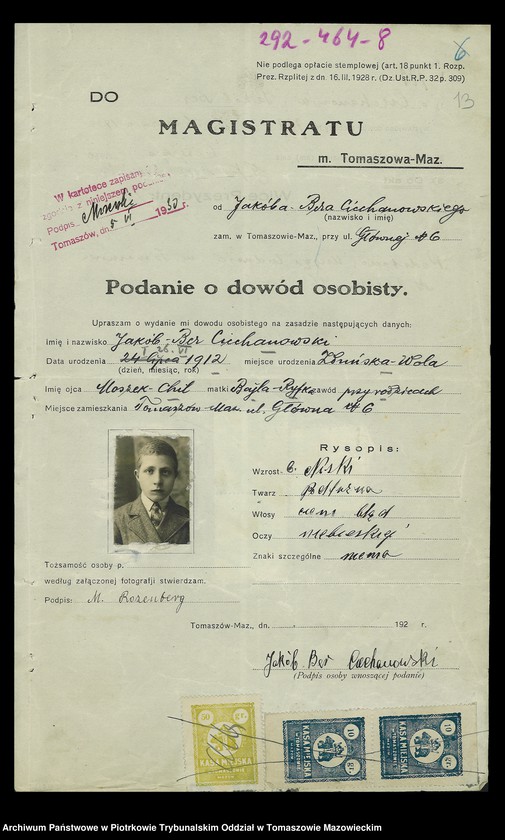 292-464-8
6
Nie podlega opłacie stemplowej (art. 18 punkt 1. Rozp.
Prez. Rzplitej z dn 16. III. 1928 r. (Dz. Ust. R. P. 32 p. 309)
13
DO
MAGISTRATU
m. Tomaszowa-Maz.
W kartotece zapisany
zgodnie z niniejszem
Podpis
Tomaszów, dn. 5 VI 1930 r.
od Jakóba-Bera Ciechanowskiego
(nazwisko i imię)
zam. w Tomaszowie-Maz., przy ul. Głównej № 6
Podanie o dowód osobisty.
Upraszam o wydanie mi dowodu osobistego na zasadzie następujących danych:
Imię i nazwisko Jakób-Ber Ciechanowski
26. VI
Data urodzenia 24 lipca 1912 miejsce urodzenia Zduńska-Wola
(dzień, miesiąc, rok)
Imię ojca Moszek-Chil matki Bajla-Ryfka zawód przy rodzicach
Miejsce zamieszkania Tomaszów-Maz. ul. Główna № 6
Rysopis:
Wzrost niski
Twarz
Włosy bląd
Oczy niebieskie
Znaki szczególne niema
Tożsamość osoby p.
według załączonej fotografji stwierdzam.
Podpis: M. Rozenberg
Tomaszów-Maz., dn. 192 r.
Jakób Ber Ciechanowski
(Podpis osoby wnoszącej podanie)
50 gr.
KASA MIEJSKA
W TOMASZOWIE
MAZOW.
10 gr.
KASA MIEJSKA
W TOMASZOWIE
MAZOW.
10 gr.
KASA MIEJSKA
W TOMASZOWIE
MAZOW.
Archiwum Państwowe w Piotrkowie Trybunalskim Oddział w Tomaszowie Mazowieckim